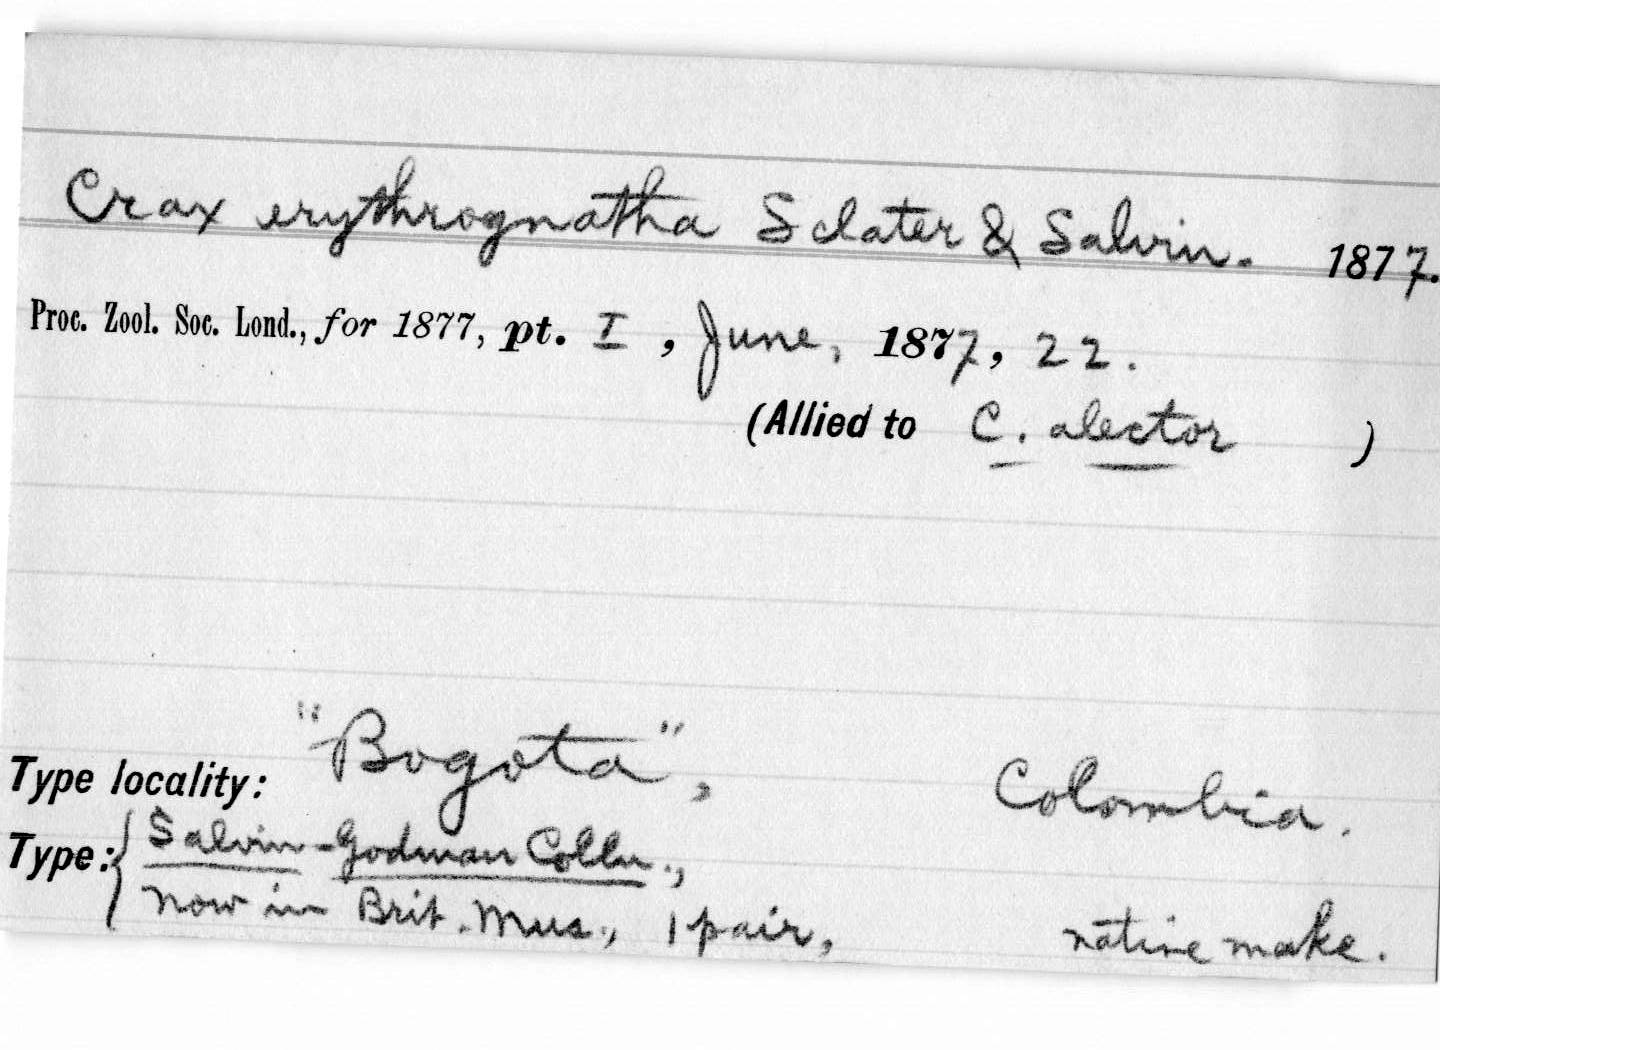 Crax erythrognatha Sclater & Salvin. 1877.
Proc. Zool. Soc. Lond., for 1877, pt. I, June, 1877, 22.
(Allied to C. alector )
Type locality: "Bogota", Colombia.
Type: { Salvin-Godman Colln.,
now in Brit. Mus., 1 pair, native make.